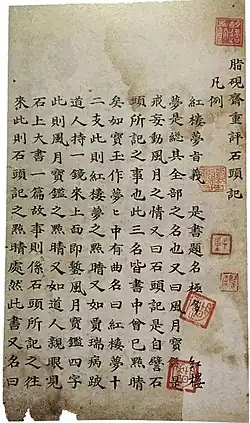 脂硯齋重評石頭記
凡例
紅樓夢旨義 是書題名極
紅樓
夢是緫其全部之名也又曰風月寶鑑是
戒妄動風月之情又曰石頭記是自譬石
頭所記之事也此三名皆書中曾已㸃睛
矣如寶玉作夢夢中有曲名曰紅樓夢十
二支此則紅樓夢之㸃睛又如賈瑞病跛
道人持一鏡來上面即鏨風月寶鑑四字
此則風月寶鑑之㸃睛又如道人親眼見
石上大書一篇故事則係石頭所記之往
來此則石頭記之㸃睛處然此書又名曰